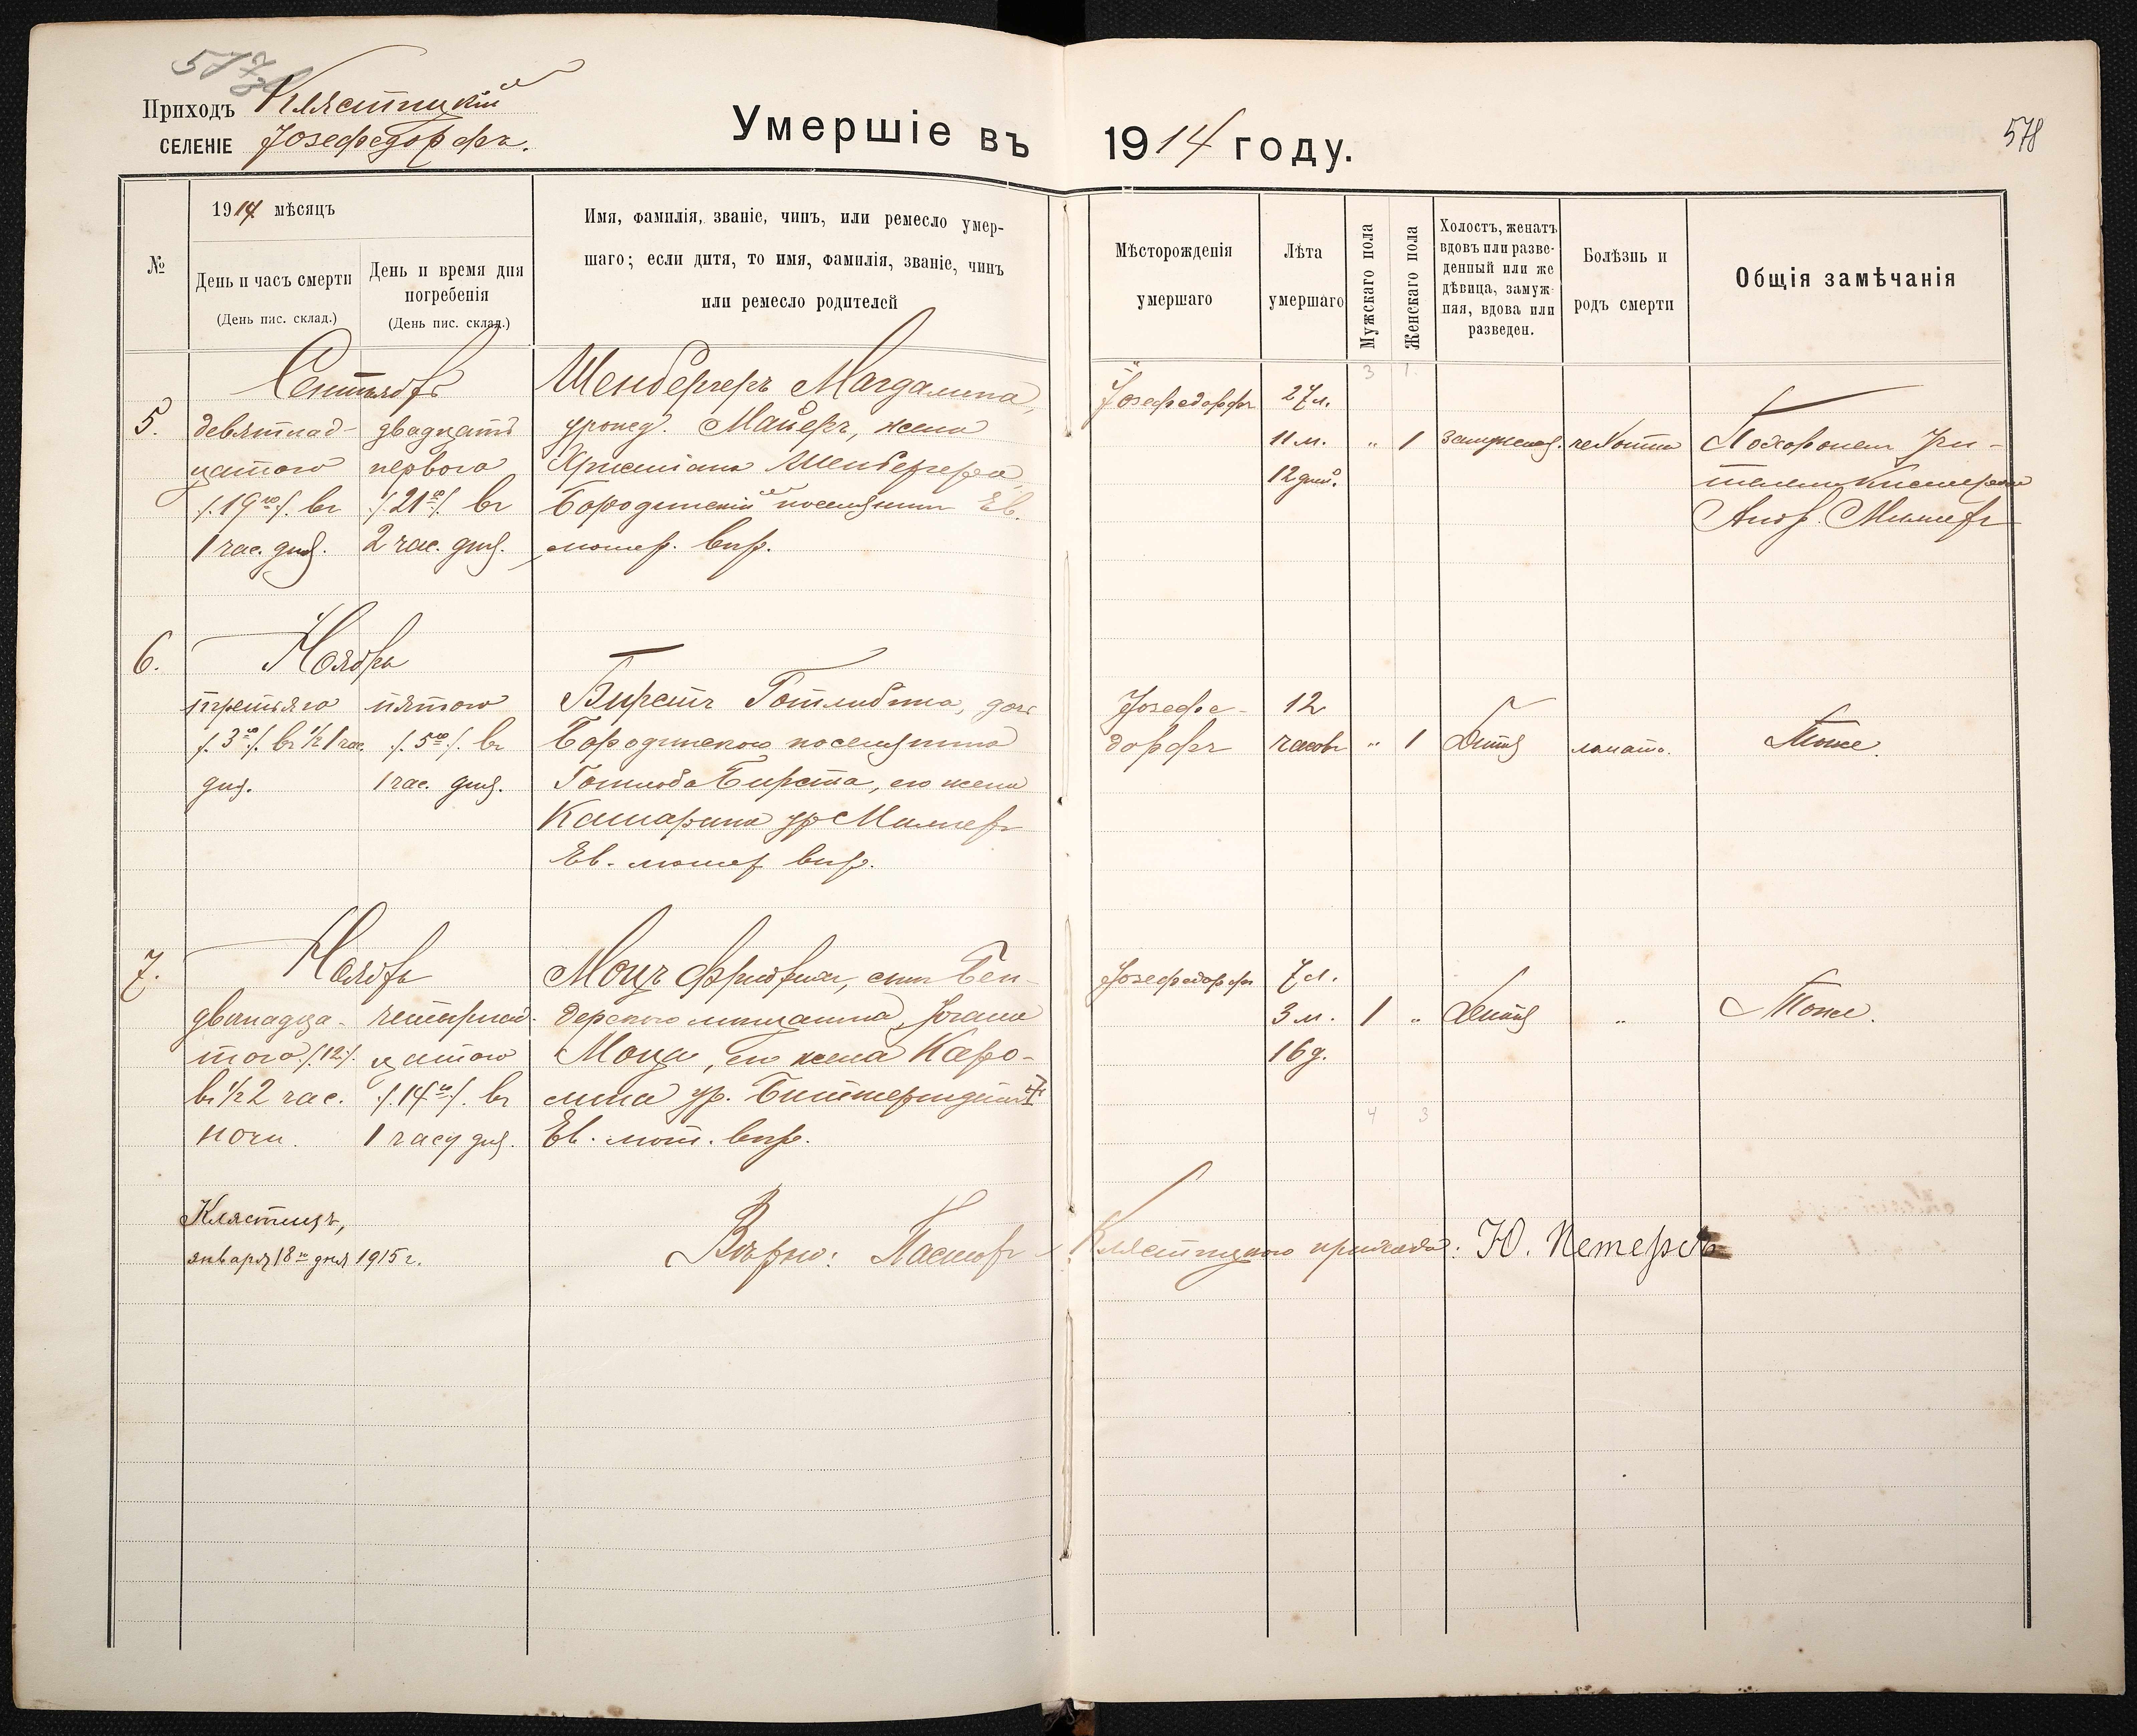 577
Приходъ Клястицкій
СЕЛЕНІЕ Јозефсдорфъ.
Умершіе въ 1914 году.
578
№
1914 мѣсяцъ
День и часъ смерти
(День пис. склад.)
День и время дня
погребенія
(День пис. склад.)
Имя, фамилія, званіе, чинъ, или ремесло умер-
шаго; если дитя, то имя, фамилія, званіе, чинъ
или ремесло родителей
Мѣсторожденія
умершаго
Лѣта
умершаго
Мужскаго пола
Женскаго пола
Холостъ, женатъ
вдовъ или разве-
денный или же
дѣвица, замуж-
няя, вдова или
разведен.
Болѣзнь и
родъ смерти
Общія замѣчанія
3 1.
5.
Сентябрь
девятнад-
цатаго
/.19го/. въ
1 час. дня.
двадцать
перваго
/.21го/. въ
2 час. дня.
Шенбергеръ Магдалина,
урожд. Майеръ, жена
Христіана Шенбергера,
Бородинскій поселянинъ Ев.
лютер. вѣр.
Јозефсдорфъ
27 л.
11 м.
12 дней.
" 1
замужняя.
чахотка
Похоронен Учи-
телем Кистером
Андр. Миллеръ
6.
Ноябрь
третьяго
/.3го/. въ ½ 1 час.
дня.
пятаго
/.5го/. въ
1 час. дня.
Бирстъ Готлибина, дочь
Бородинскаго поселянина
Готлиба Бирста, его жена
Катарина ур Миллеръ
Ев. лютер вѣр.
Јозефс-
дорфъ
12
часовъ
" 1
Дитя
Тоже.
7.
Ноябрь
двѣнадца-
таго /.12./.
въ ½ 2 час.
ночи.
четырнад-
цатаго
/.14го/. въ
1 часу дня.
Моцъ Фридрихъ, сынъ Бен-
дерскаго мещанина, Јогана
Моца, его жена Каро-
лина ур.
Ев. лют. вѣр.
Јозефсдорфъ
7 л.
3 м.
16 д.
1 "
Дитя
"
Тоже.
4 3
Клястицъ,
января 18го дня 1915 г.
Вѣрно: Пасторъ Клястицкаго прихода: Ю. Петерсъ